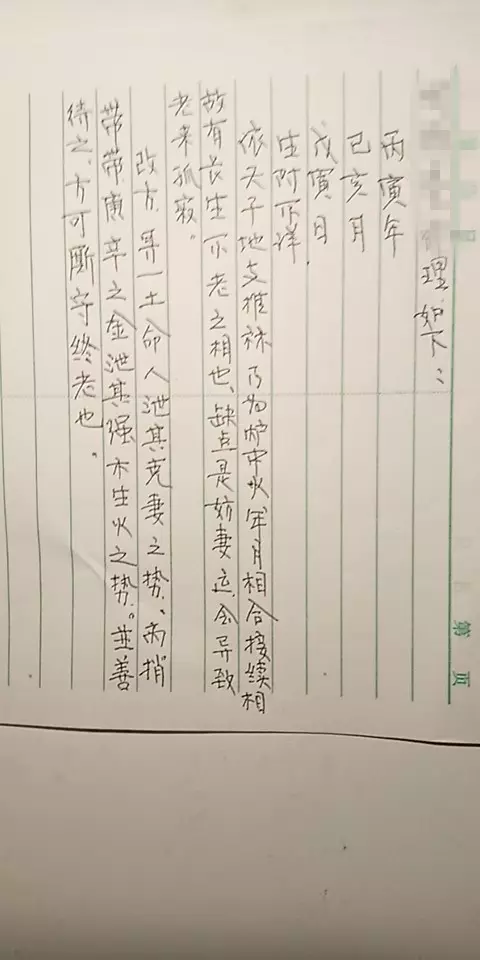 第 页
理如下：
丙寅年
己亥月
戊寅日
生时不详.
依天干地支推林乃为炉中火年月相合接续相
故有长生不老之相也、缺点是妨妻运,会导致
老来孤寂。
改方、寻一土命人泄其克妻之势、而捎
带带庚辛之金泄其强木生火之势。並善
待之、方可断守终老也。